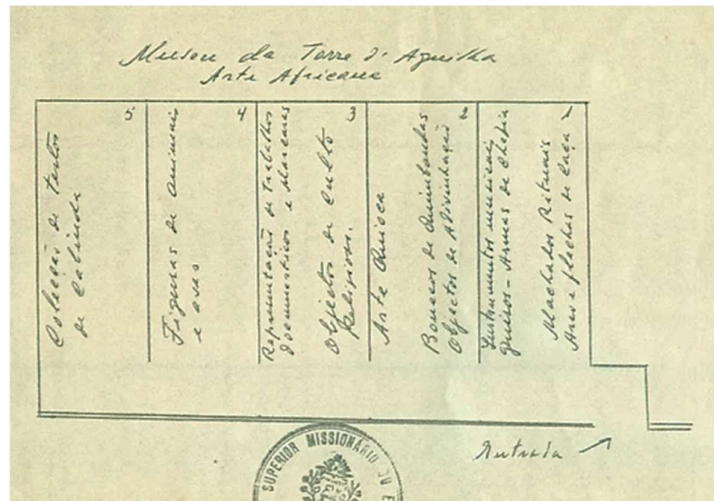 Museu da Torre d'Aguilha
Arte Africana
5
Colecção de Testos
de Cabinda
4
Figuras de animais
e aves
3
Representação de Trabalhos
domesticos e Mascaras
Objectos de Culto
Religioso.
2
Arte Quioca
Bonecos de Quimbandas
Objectos de Adivinhação
1
Instrumentos musicais
Guisos - Armas de Chefia
Machados Rituais
Arcos e flechas de Caça
Entrada
SUPERIOR MISSIONÁRIO DU E